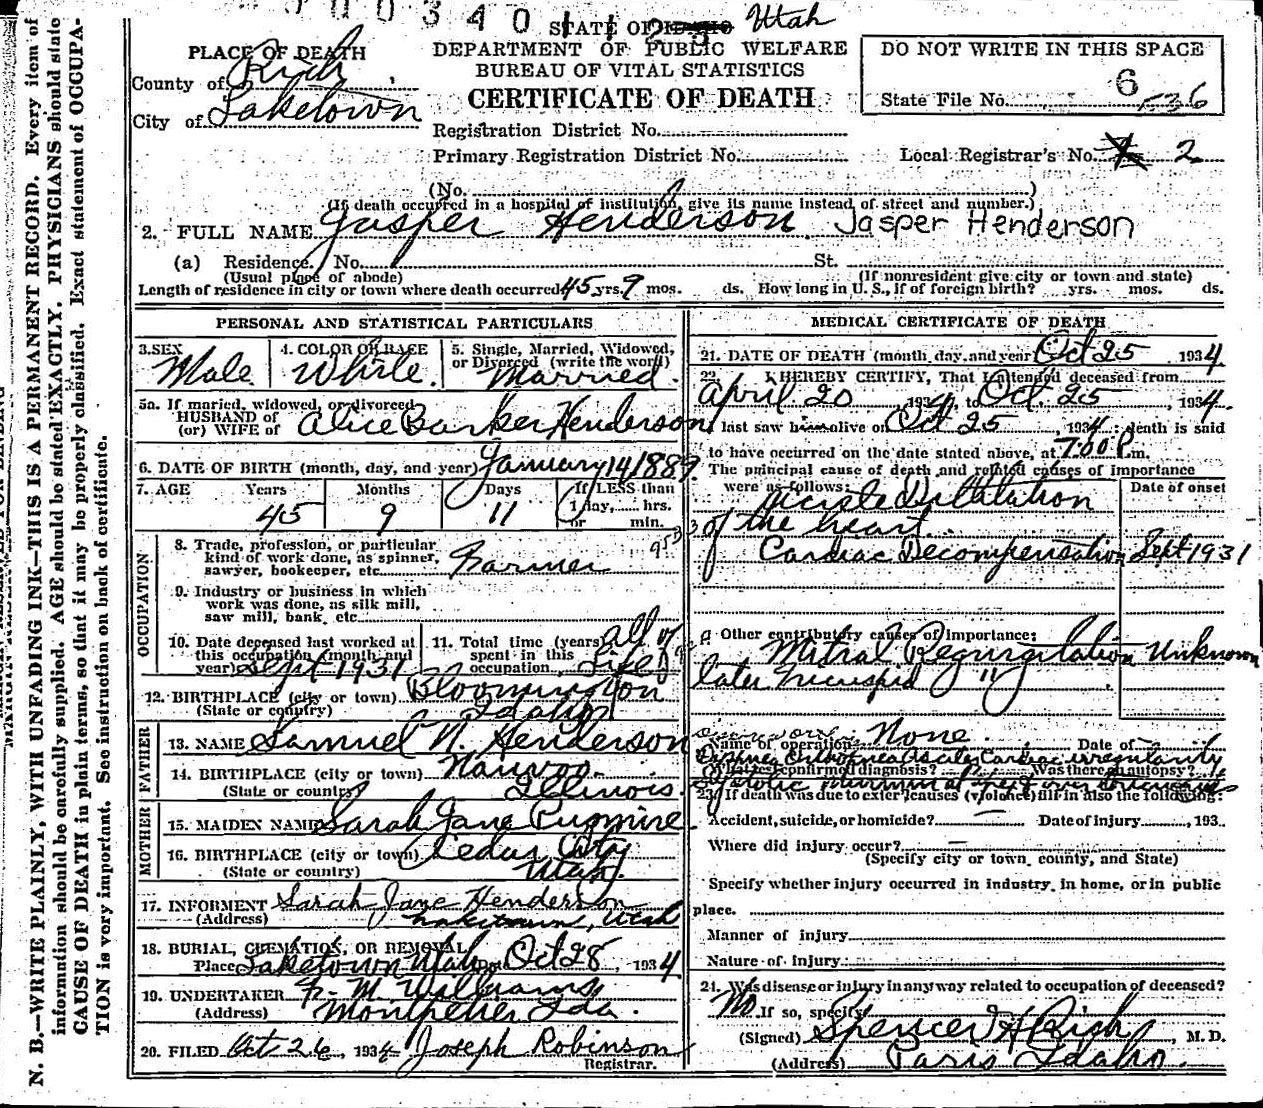 0 0 3 4 0 1 1 2 3
STATE OF IDAHO Utah
DEPARTMENT OF PUBLIC WELFARE
BUREAU OF VITAL STATISTICS
CERTIFICATE OF DEATH
PLACE OF DEATH
County of Rich
City of Laketown
DO NOT WRITE IN THIS SPACE
6
State File No. 536
Registration District No.
Primary Registration District No. Local Registrar's No. 2
(No. )
(If death occurred in a hospital of institution, give its name instead of street and number.)
2. FULL NAME Jasper Henderson Jasper Henderson
(a) Residence, No. St.
(Usual place of abode) (If nonresident give city or town and state)
Length of residence in city or town where death occurred 45 yrs. 9 mos. ds. How long in U. S., if of foreign birth? yrs. mos. ds.
PERSONAL AND STATISTICAL PARTICULARS
3. SEX Male
4. COLOR OR RACE White
5. Single, Married, Widowed, or Divorced (write the word) Married
5a. If maried, widowed, or divorced
HUSBAND of
(or) WIFE of Alice Barker Henderson
6. DATE OF BIRTH (month, day, and year) January 14 1889
7. AGE Years Months Days If LESS than
45 9 11 1 day, hrs.
or min.
8. Trade, profession, or particular
kind of work done, as spinner,
sawyer, bookeeper, etc. Farmer
9. Industry or business in which
work was done, as silk mill,
saw mill, bank, etc.
10. Date deceased last worked at
this occupation (month and
year) Sept 1931
11. Total time (years)
spent in this
occupation all of life
12. BIRTHPLACE (city or town) Bloomington
(State or country) Idaho
13. NAME Samuel N. Henderson
14. BIRTHPLACE (city or town) Nauvoo
(State or country) Illinois
15. MAIDEN NAME Sarah Jane Pugmire
16. BIRTHPLACE (city or town) Cedar City
(State or country) Utah
17. INFORMENT Sarah Jane Henderson
(Address) Laketown, Utah
18. BURIAL, CREMATION, OR REMOVAL
Place Laketown Utah Date Oct 28, 1934
19. UNDERTAKER M Williams
(Address) Montpelier Ida.
20. FILED Oct 26, 1934 Joseph Robinson
Registrar.
OCCUPATION
FATHER
MOTHER
MEDICAL CERTIFICATE OF DEATH
21. DATE OF DEATH (month, day, and year) Oct 25, 1934.
22. I HEREBY CERTIFY, That I attended deceased from
April 20, 1934, to Oct. 25, 1934.
I last saw him alive on Oct 25, 1934; death is said
to have occurred on the date stated above, at 7:00 P.m.
The principal cause of death and related causes of importance
were as follows: Date of onset
Dilitation
of the heart
Cardiac Decompensation Sept 1931
Other contributory causes of importance:
Mitral Regurgitation Unknown
later Tricuspid "
Name of operation None Date of
What test confirmed diagnosis? Was there an autopsy?
Cardiac irregularity
23. If death was due to exter. causes (violence) fill in also the following:
Accident, suicide, or homicide? Date of injury , 193
Where did injury occur?
(Specify city or town, county, and State)
Specify whether injury occurred in industry, in home, or in public
place.
Manner of injury
Nature of injury
21. Was disease or injury in anyway related to occupation of deceased?
No If so, specify
(Signed) Spencer H Rich, M. D.
(Address) Paris Idaho
N. B.—WRITE PLAINLY, WITH UNFADING INK—THIS IS A PERMANENT RECORD. Every item of
information should be carefully supplied. AGE should be stated EXACTLY. PHYSICIANS should state
CAUSE OF DEATH in plain terms, so that it may be properly classified. Exact statement of OCCUPA-
TION is very important. See instruction on back of certificate.
MARGIN RESERVED FOR BINDING